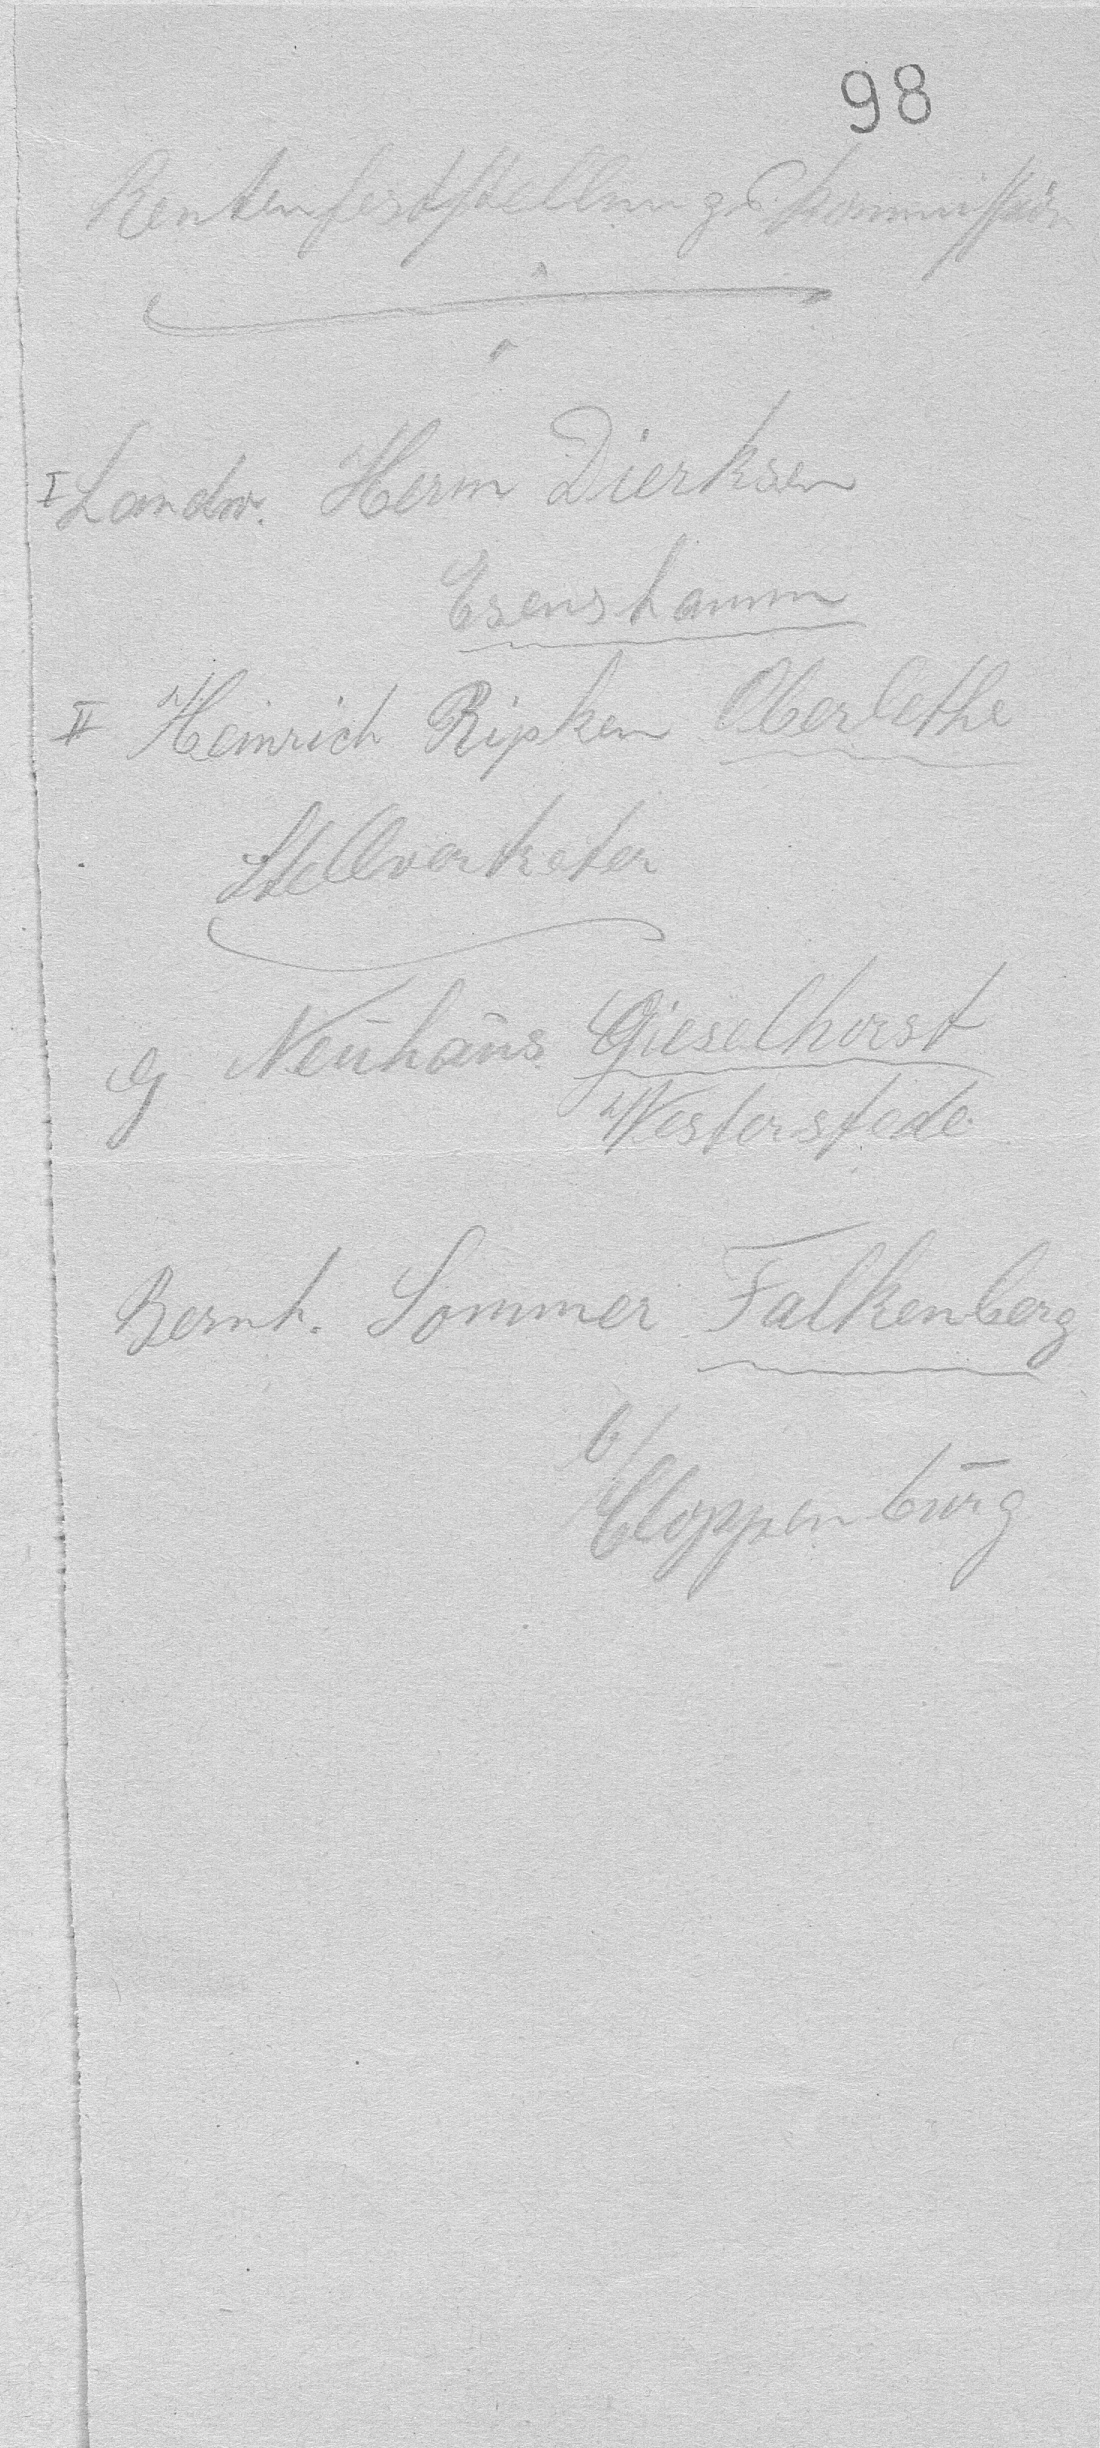 98
Rentenfeststellungskommission
I Landw. Herm Dierksen
Esenshamm
II Heinrich Ripken Oberlethe
Stellvertreter
G Neuhaus Gieselhorst
Westerstede
Bernh. Sommer Falkenberg
b/
Cloppenburg